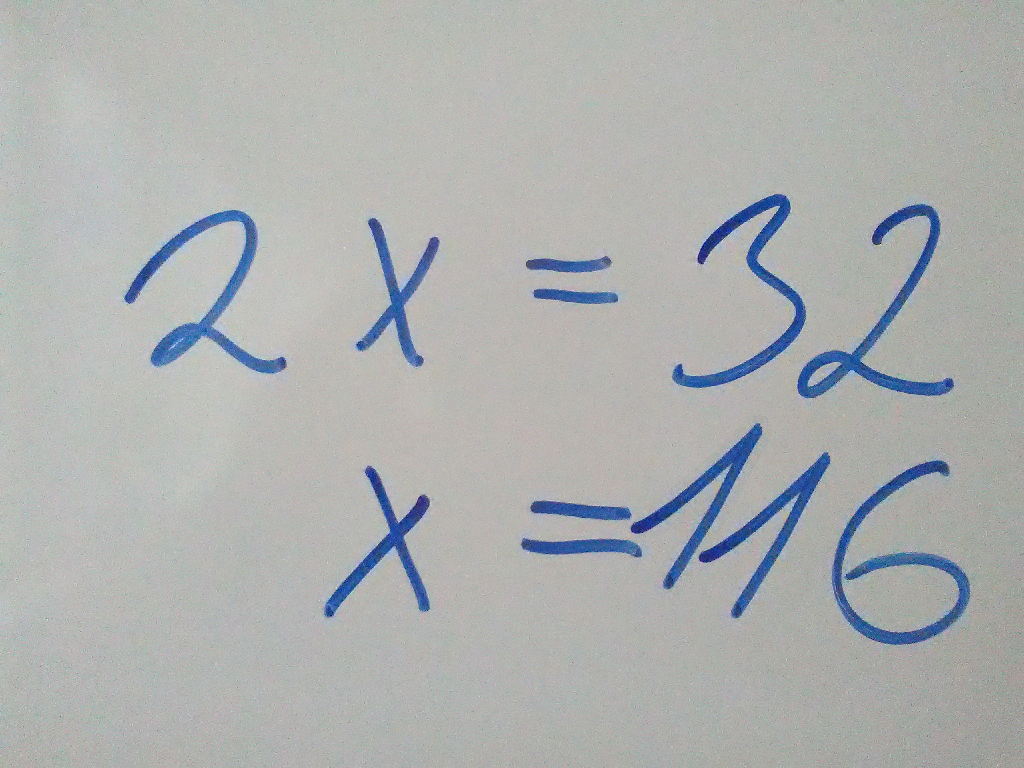 2x = 32
x = 116